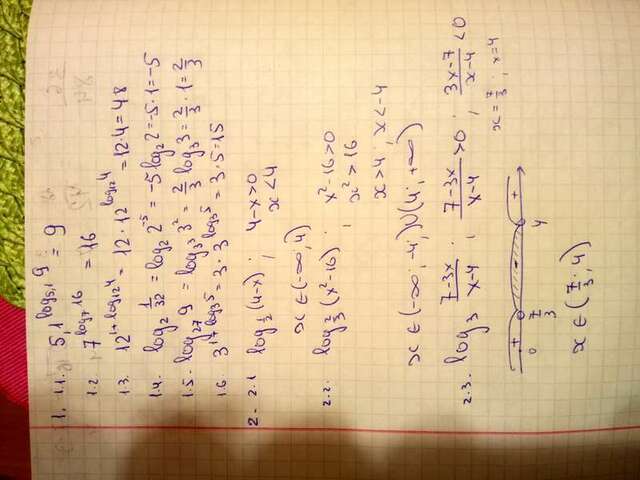 1. 1.1. 5,1^{log_{5,1} 9} = 9
1.2 7^{log_7 16} = 16
1.3. 12^{1+log_{12} 4} = 12 · 12^{log_{12} 4} = 12·4=48
1.4. log_2 1/32 = log_2 2^{-5} = -5 log_2 2 = -5·1 = -5
1.5. log_{27} 9 = log_{3^3} 3^2 = 2/3 log_3 3 = 2/3 · 1 = 2/3
1.6. 3^{1+log_3 5} = 3 · 3^{log_3 5} = 3·5=15
2. 2.1 log_{1/2} (4-x) ; 4-x>0
x<4
x ∈ (-∞; 4)
2.2. log_{2/3} (x²-16) ; x²-16>0
x²>16
x>4 , x<-4
x ∈ (-∞; -4) ∪ (4; +∞)
2.3. log_3 (7-3x)/(x-4) ; (7-3x)/(x-4) >0 ; (3x-7)/(x-4) <0
x = 7/3 ; x=4
+ - +
0 7/3 4
x ∈ (7/3 ; 4)